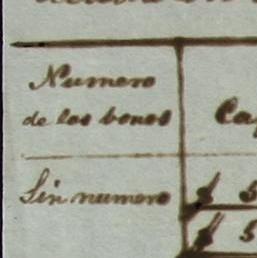 Numero
de los bonos
Sin numero $ 5
$ 5